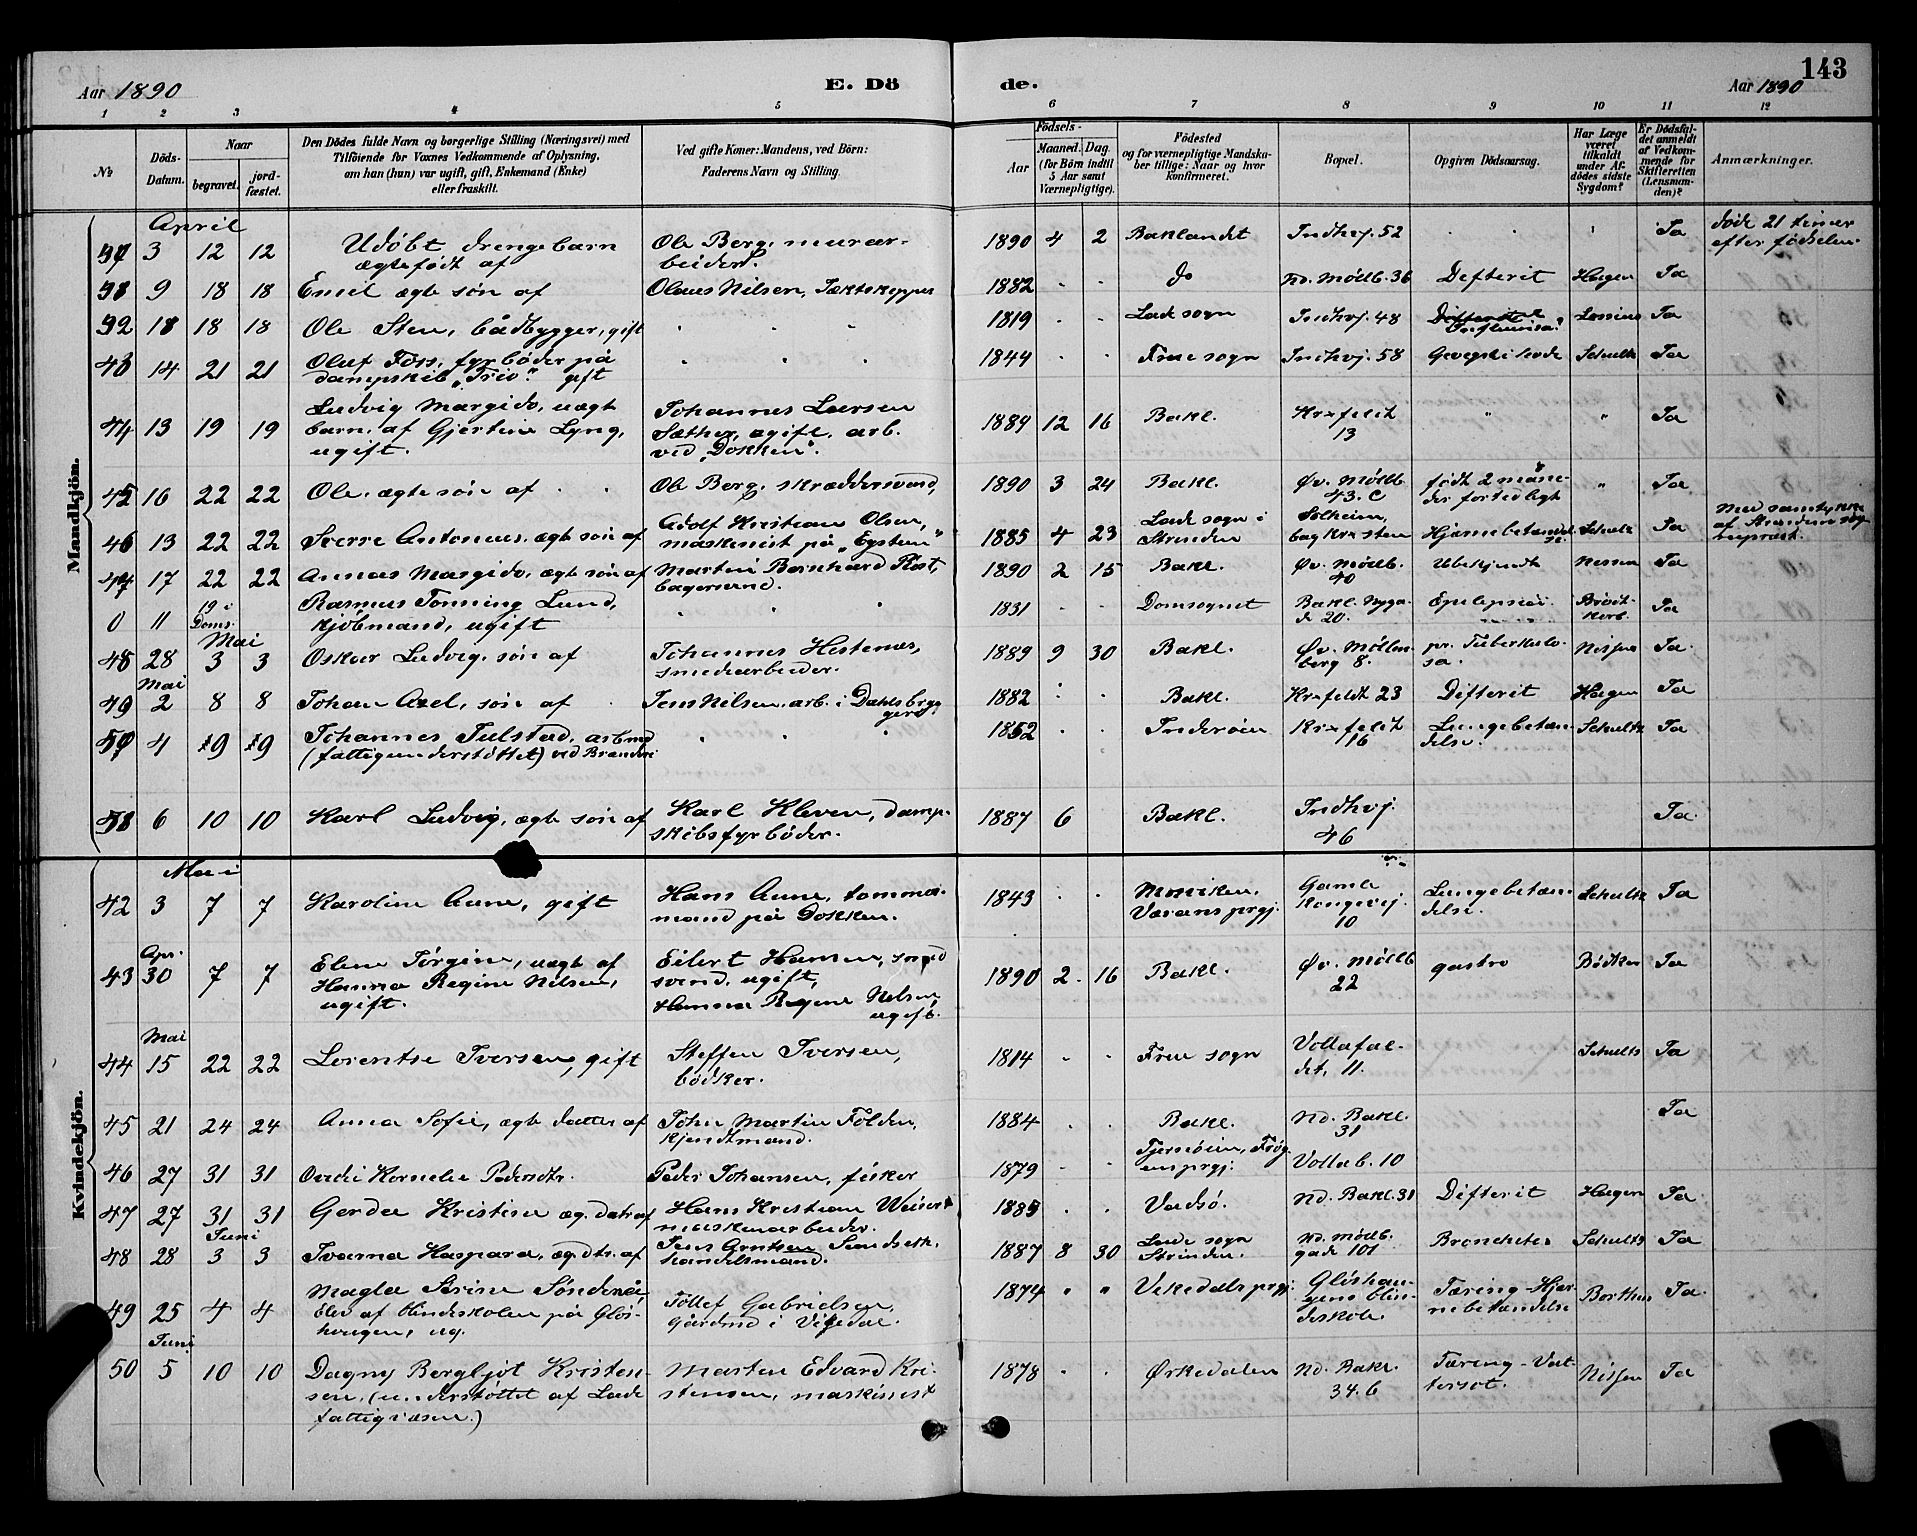 143
Aar 1890
E. Döde.
Aar 1890
1 2 3 4 5 6 7 8 9 10 11 12
No.
Döds-Datum.
Naar
begravet.
jordfæstet.
Den Dödes fulde Navn og borgerlige Stilling (Næringsvei) med
Tilföiende for Voxnes Vedkommende af Oplysning,
om han (hun) var ugift, gift, Enkemand (Enke)
eller fraskilt.
Ved gifte Koner: Mandens, ved Börn:
Faderens Navn og Stilling.
Födsels-
Aar
Maaned. Dag.
(for Börn indtil
5 Aar samt
Værnepligtige).
Födested
og for værnepligtige Mandskaber tillige: Naar og hvor
konfirmeret.
Bopæl.
Opgiven Dödsaarsag.
Har Læge
været
tilkaldt
under Afdödes sidste
Sygdom?
Er Dödsfaldet anmeldt
af Vedkommende for
Skifteretten
(Lensmanden)?
Anmærkninger.
Mandkjön.
April
3 12 12 Udöbt drengebarn ægtefödt af Ole Berg, murarbeider. 1890 4 2 Baklandet Indhvj. 52 Ja döde 21 timer efter födselen.
9 18 18 Emil ægte sön af Olaus Nilsen, 1882 do Nd. Möllb. 36 Defterit Hagen Ja
18 18 18 Ole Sten, bådbygger, gift 1819 Lade sogn Indhvj. 48 Ja
43 14 21 21 Oluf Foss, fyrböder på dampskib „Trio". gift 1844 Frue sogn Indhvj. 58 Schultz Ja
44 13 19 19 Ludvig Margido, uægt barn af Gjertine Lyng, ugift. Johannes Larsen Sæther, ugift, arb. ved „Dokken". 1889 12 16 Bakl. 13 " " Ja
45 16 22 22 Ole, ægte sön af Ole Berg, skræddersvend, 1890 3 24 Bakl. Öv. Möllb. 43. c födt 2 måneder fortidligt " Ja
46 13 22 22 Sverre Antonius, ægte sön af Adolf Kristian Olsen, maskinist på „Eystein" 1885 4 23 Lade sogn i Strinden Solheim, bag Kr.sten Hjernebetændelse Schultz Ja
47 17 22 22 Annas Margido, ægte sön af Martin Bernhard Flöst, bagersvend. 1890 2 15 Bakl. Öv. Möllb. 40 Ubekjendt Nissen Ja
0 11 19 i Doms. Rasmus Tönning Lund, kjöbmand, ugift 1831 Domsognet Bakl. Nygade 20. Epilepsie. Ja
Mai
48 28 3 3 Oskar Ludvig, sön af Johannes Hestenes, smedarbeider. 1889 9 30 Bakl. Öv. Möllenberg 8. Tuberkulosa. Nissen Ja
Mai
49 2 8 8 Johan Axel, sön af Jens Nilsen, arb. i Dahls bryggeri 1882 Bakl. Kr.feldt 23 Difterit Hagen Ja
4 9 9 Johannes Julstad, arbmd (fattigunderstöttet) ved Brænderi 1852 Inderöen 16 Lungebetændelse. Schultz Ja
6 10 10 Karl Ludvig, ægte sön af Karl Kleven, dampskibsfyrböder. 1887 6 Bakl. Indhvj. 46 Ja
Kvindekjön.
Mai
42 3 7 7 Karoline Aune, gift Hans Aune, tömmermand på Dokken. 1843 Værans prgj. Gamle Kongevej. 10 Lungebetændelse Schultz Ja
Apr.
43 30 7 7 Eline Jörgine, uægte af Hanna Regine Nilsen, ugift. Eilert Hansen, smedsvend, ugift, Hanna Regine Nilsen, ugift. 1890 2 16 Bakl. Öv. Möllb 22 gastro Bödtker Ja
Mai
44 15 22 22 Lorentse Iversen, gift Steffen Iversen, bödker. 1814 Frue sogn Vollafaldet, 11. Schultz Ja
45 21 24 24 Anna Sofie, ægte datter af John Martin Folden, kjendtmand. 1884 Bakl. Nd. Bakl. 31 Ja
46 27 31 31 Kornelie Pedersdtr. Peder Johansen, fisker 1879 Vollab. 10
47 27 31 31 Gerda Kristine æg. datr af Hans Kristian maskinarbeider. 1885 Vadsö. Nd. Bakl. 31 Difterit Hagen Ja
Juni
48 28 3 3 Ivarna Kaspara, æg. dtr. af Jens Arntsen handelsmand. 1887 8 30 Lade sogn Strinden. Nd. Möllb. gade 101 Bronchites Schultz Ja
49 25 4 4 Magla Serine Söndenå, Elev af blindeskolen på Glöshaugen, ug. Tollef Gabrielsen, Gårdmd i Vikedal. 1874 " " Vikedals prgj. Glöshaugens blindeskole. Tæring-Hjernebetændelse Borthen Ja
Juni
50 5 10 10 Dagny Bergljot Kristensen, (understöttet af Lade fattigvæsen.) Martin Edvard Kristensen, maskinist 1878 Örkedalen Nd. Bakl. 34. b Tæring-Vattersot. Nissen Ja